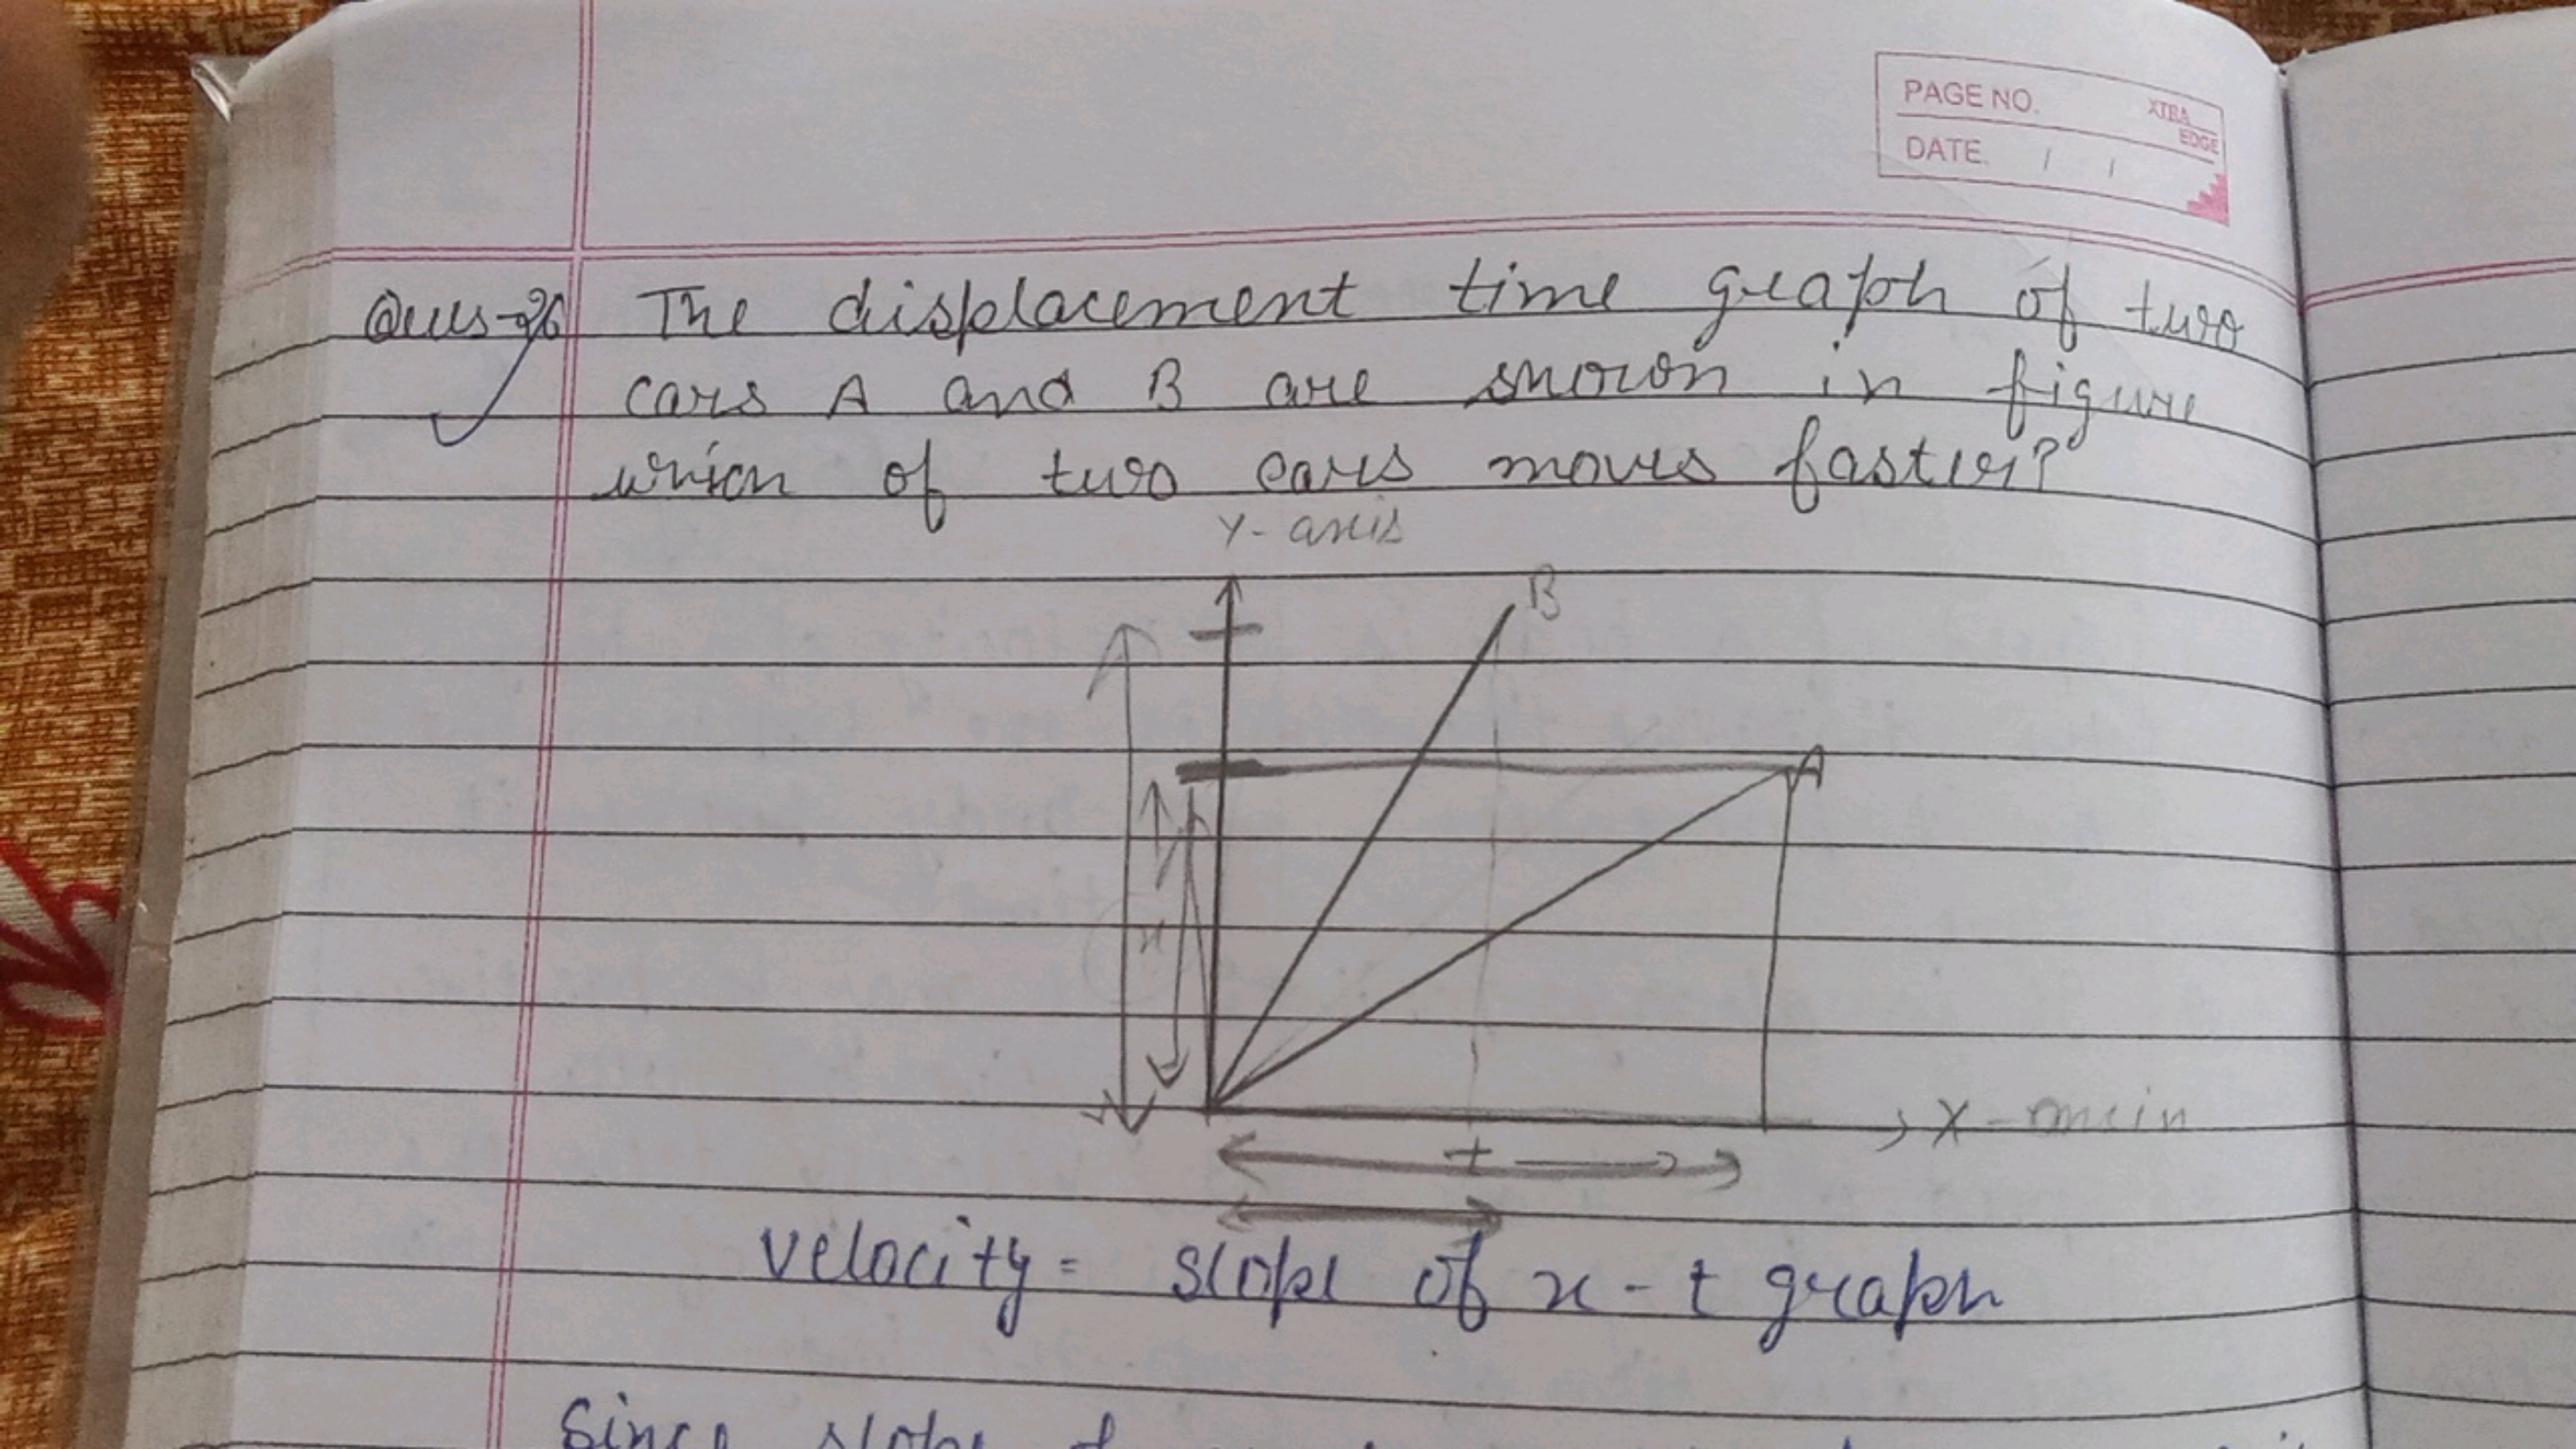 PAGE NO.
XTRA
EDGE
DATE. / /
Ques-26 The displacement time graph of two
cars A and B are shown in figure
which of two cars moves faster?
Y-axis
B
A
x
X-
t
velocity = slope of x-t graph
Since slope of